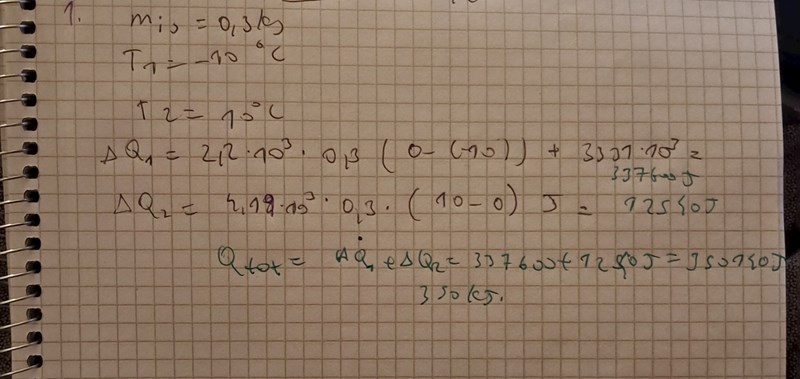 1. m is = 0,3 kg
T1 = -10 °C
T2 = 10°C
ΔQ1 = 2,2·10³ · 0,3 ( 0-(-10)) + 331·10³ =
337600J
ΔQ2 = 4,18·10³ · 0,3 · ( 10-0) J = 12540J
Qtot = ΔQ1 + ΔQ2 = 337600 + 12540J = 350140J
350 kJ.